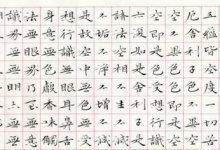 五蘊皆空度一切苦
厄舍利子色不異空
空不異色色即是空
空即是色受想行識
亦復如是舍利子是
諸法空相不生不滅
不垢不淨不增不減
是故空中無色無受
想行識無眼耳鼻舌
身意無色聲香味觸
法無眼界乃至無意
識界無無明亦無無